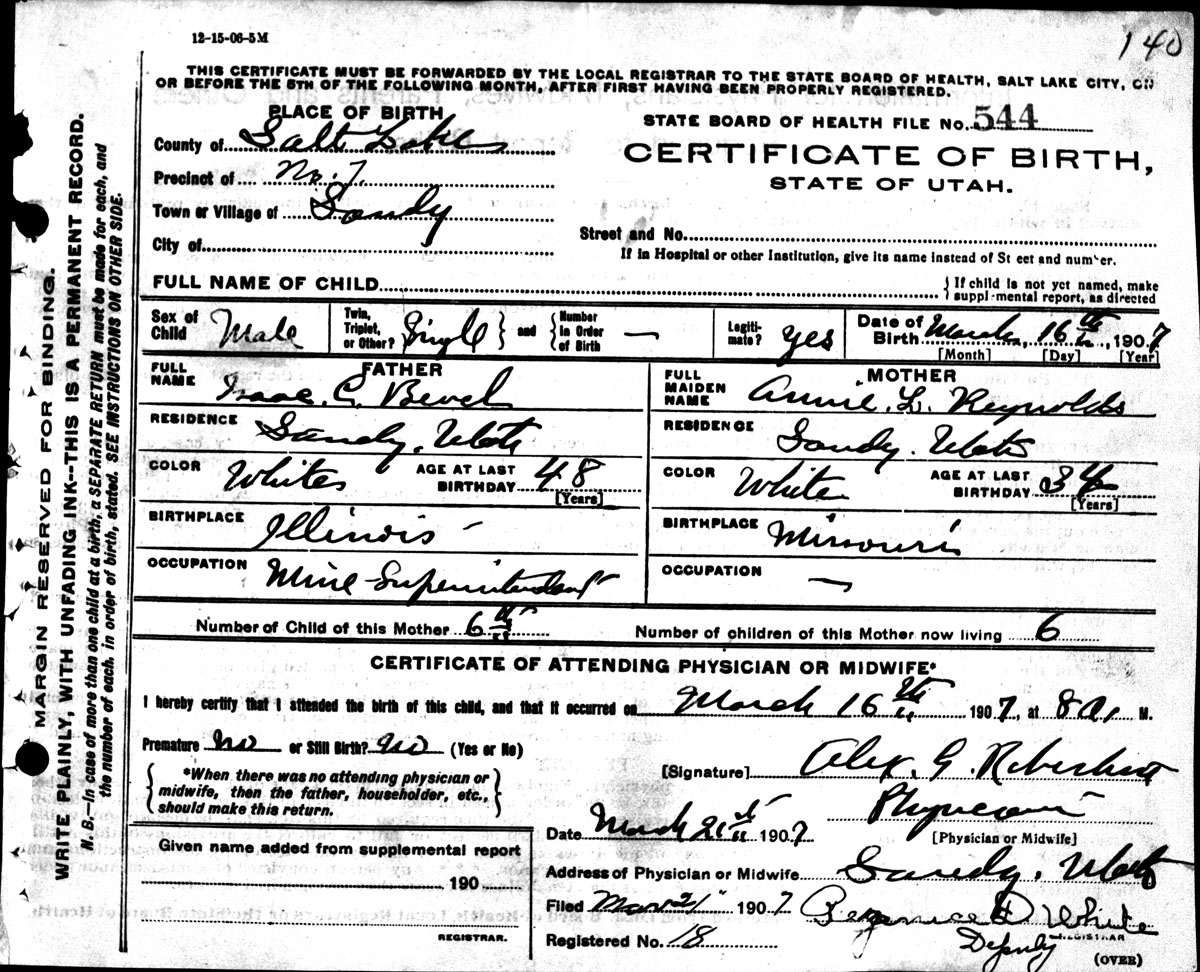 12-15-06-5M
140
THIS CERTIFICATE MUST BE FORWARDED BY THE LOCAL REGISTRAR TO THE STATE BOARD OF HEALTH, SALT LAKE CITY, ON
OR BEFORE THE 5TH OF THE FOLLOWING MONTH, AFTER FIRST HAVING BEEN PROPERLY REGISTERED.
PLACE OF BIRTH
STATE BOARD OF HEALTH FILE No. 544
County of Salt Lake
CERTIFICATE OF BIRTH,
STATE OF UTAH.
Precinct of No. 7.
Town or Village of Sandy
City of
Street and No.
If in Hospital or other Institution, give its name instead of St eet and num er.
FULL NAME OF CHILD
{ If child is not yet named, make
suppl mental report, as directed
Sex of Child Male
Twin, Triplet, or Other? Single } and { Number in Order of Birth —
Legiti-mate? yes
Date of Birth March 16th, 1907
[Month] [Day] [Year]
FATHER
FULL NAME Isaac. C. Bevel
RESIDENCE Sandy. Utah
COLOR White AGE AT LAST BIRTHDAY 48 [Years]
BIRTHPLACE Illinois
OCCUPATION Mine-Superintendent
MOTHER
FULL MAIDEN NAME Annie. L. Reynolds
RESIDENCE Sandy. Utah
COLOR White AGE AT LAST BIRTHDAY 34 [Years]
BIRTHPLACE Missouri
OCCUPATION —
Number of Child of this Mother 6th
Number of children of this Mother now living 6
CERTIFICATE OF ATTENDING PHYSICIAN OR MIDWIFE*
I hereby certify that I attended the birth of this child, and that it occurred on March 16th 1907, at 8 A. M.
Premature No or Still Birth? No (Yes or No)
{ *When there was no attending physician or
midwife, then the father, householder, etc.,
should make this return. }
[Signature] Alex. G. Robertson
Physician
[Physician or Midwife]
Date March 21st 1907
Given name added from supplemental report
190
REGISTRAR.
Address of Physician or Midwife Sandy. Utah
Filed Mar 21 1907 D White
Deputy REGISTRAR
Registered No. 18
(OVER)
MARGIN RESERVED FOR BINDING.
WRITE PLAINLY, WITH UNFADING INK--THIS IS A PERMANENT RECORD.
N.B.—In case of more than one child at a birth, a SEPARATE RETURN must be made for each, and
the number of each, in order of birth, stated. SEE INSTRUCTIONS ON OTHER SIDE.